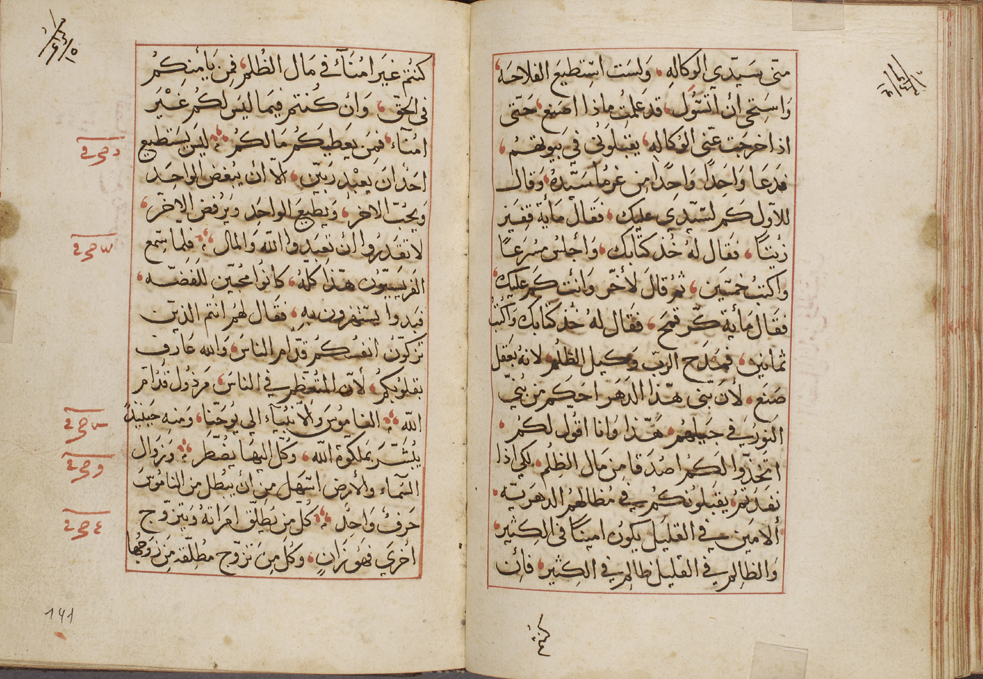 متى سيدي الوكاله ولست استطيع الفلاحه
واستحي ان اتسول قد علمت ماذا اصنع حتى
اذا خرجت عني الوكاله يقبلوني في بيوتهم
فدعا واحدًا واحدًا من غرما سيده وقال
للاول كم لسيدي عليك فقال مايه قفيز
زيتًا فقال له خذ كتابك واجلس مسرعًا
واكتب خمسين ثم قال لاخر وانت كم عليك
فقال مايه كر قمح فقال له خذ كتابك واكتب
ثمانين فمدح الرب وكيل الظلم لانه بعقل
صنع لان بني هذا الدهر احكم من بني
النور في جيلهم هذا وانا اقول لكم
اتخذوا لكم اصدقا من مال الظلم لكي اذا
نفدتم يقبلونكم في مظالهم الدهريه
الامين في القليل يكون امينًا في الكثير
والظالم في القليل ظالم في الكثير فان
كنتم غير امنآء في مال الظلم فمن يامنكم
في الحق وان كنتم فيما ليس لكم غير
امناء فمن يعطيكم مالكم ليس يستطيع
احد ان يعبد ربين الا ان يبغض الواحد
ويحب الاخر ويطيع الواحد ويرفض الاخر
لا تقدروا ان تعبدوا الله والمال فلما سمع
الفريسيون هذا كله كانوا محبين للفضه
فبدوا يستهزون به فقال لهم انتم الذين
تزكون انفسكم قدام الناس والله عارف
بقلوبكم لان المتعظم في الناس مرذول قدام
الله الناموس والانبياء الى يوحنا ومنه حينيذ
يبشر بملكوة الله وكل اليها يضطر وزوال
السماء والارض اسهل من ان يبطل من الناموس
حرف واحد كل من يطلق امراته ويتزوج
اخري فهو زانٍ وكل من تزوج مطلقه من زوجها